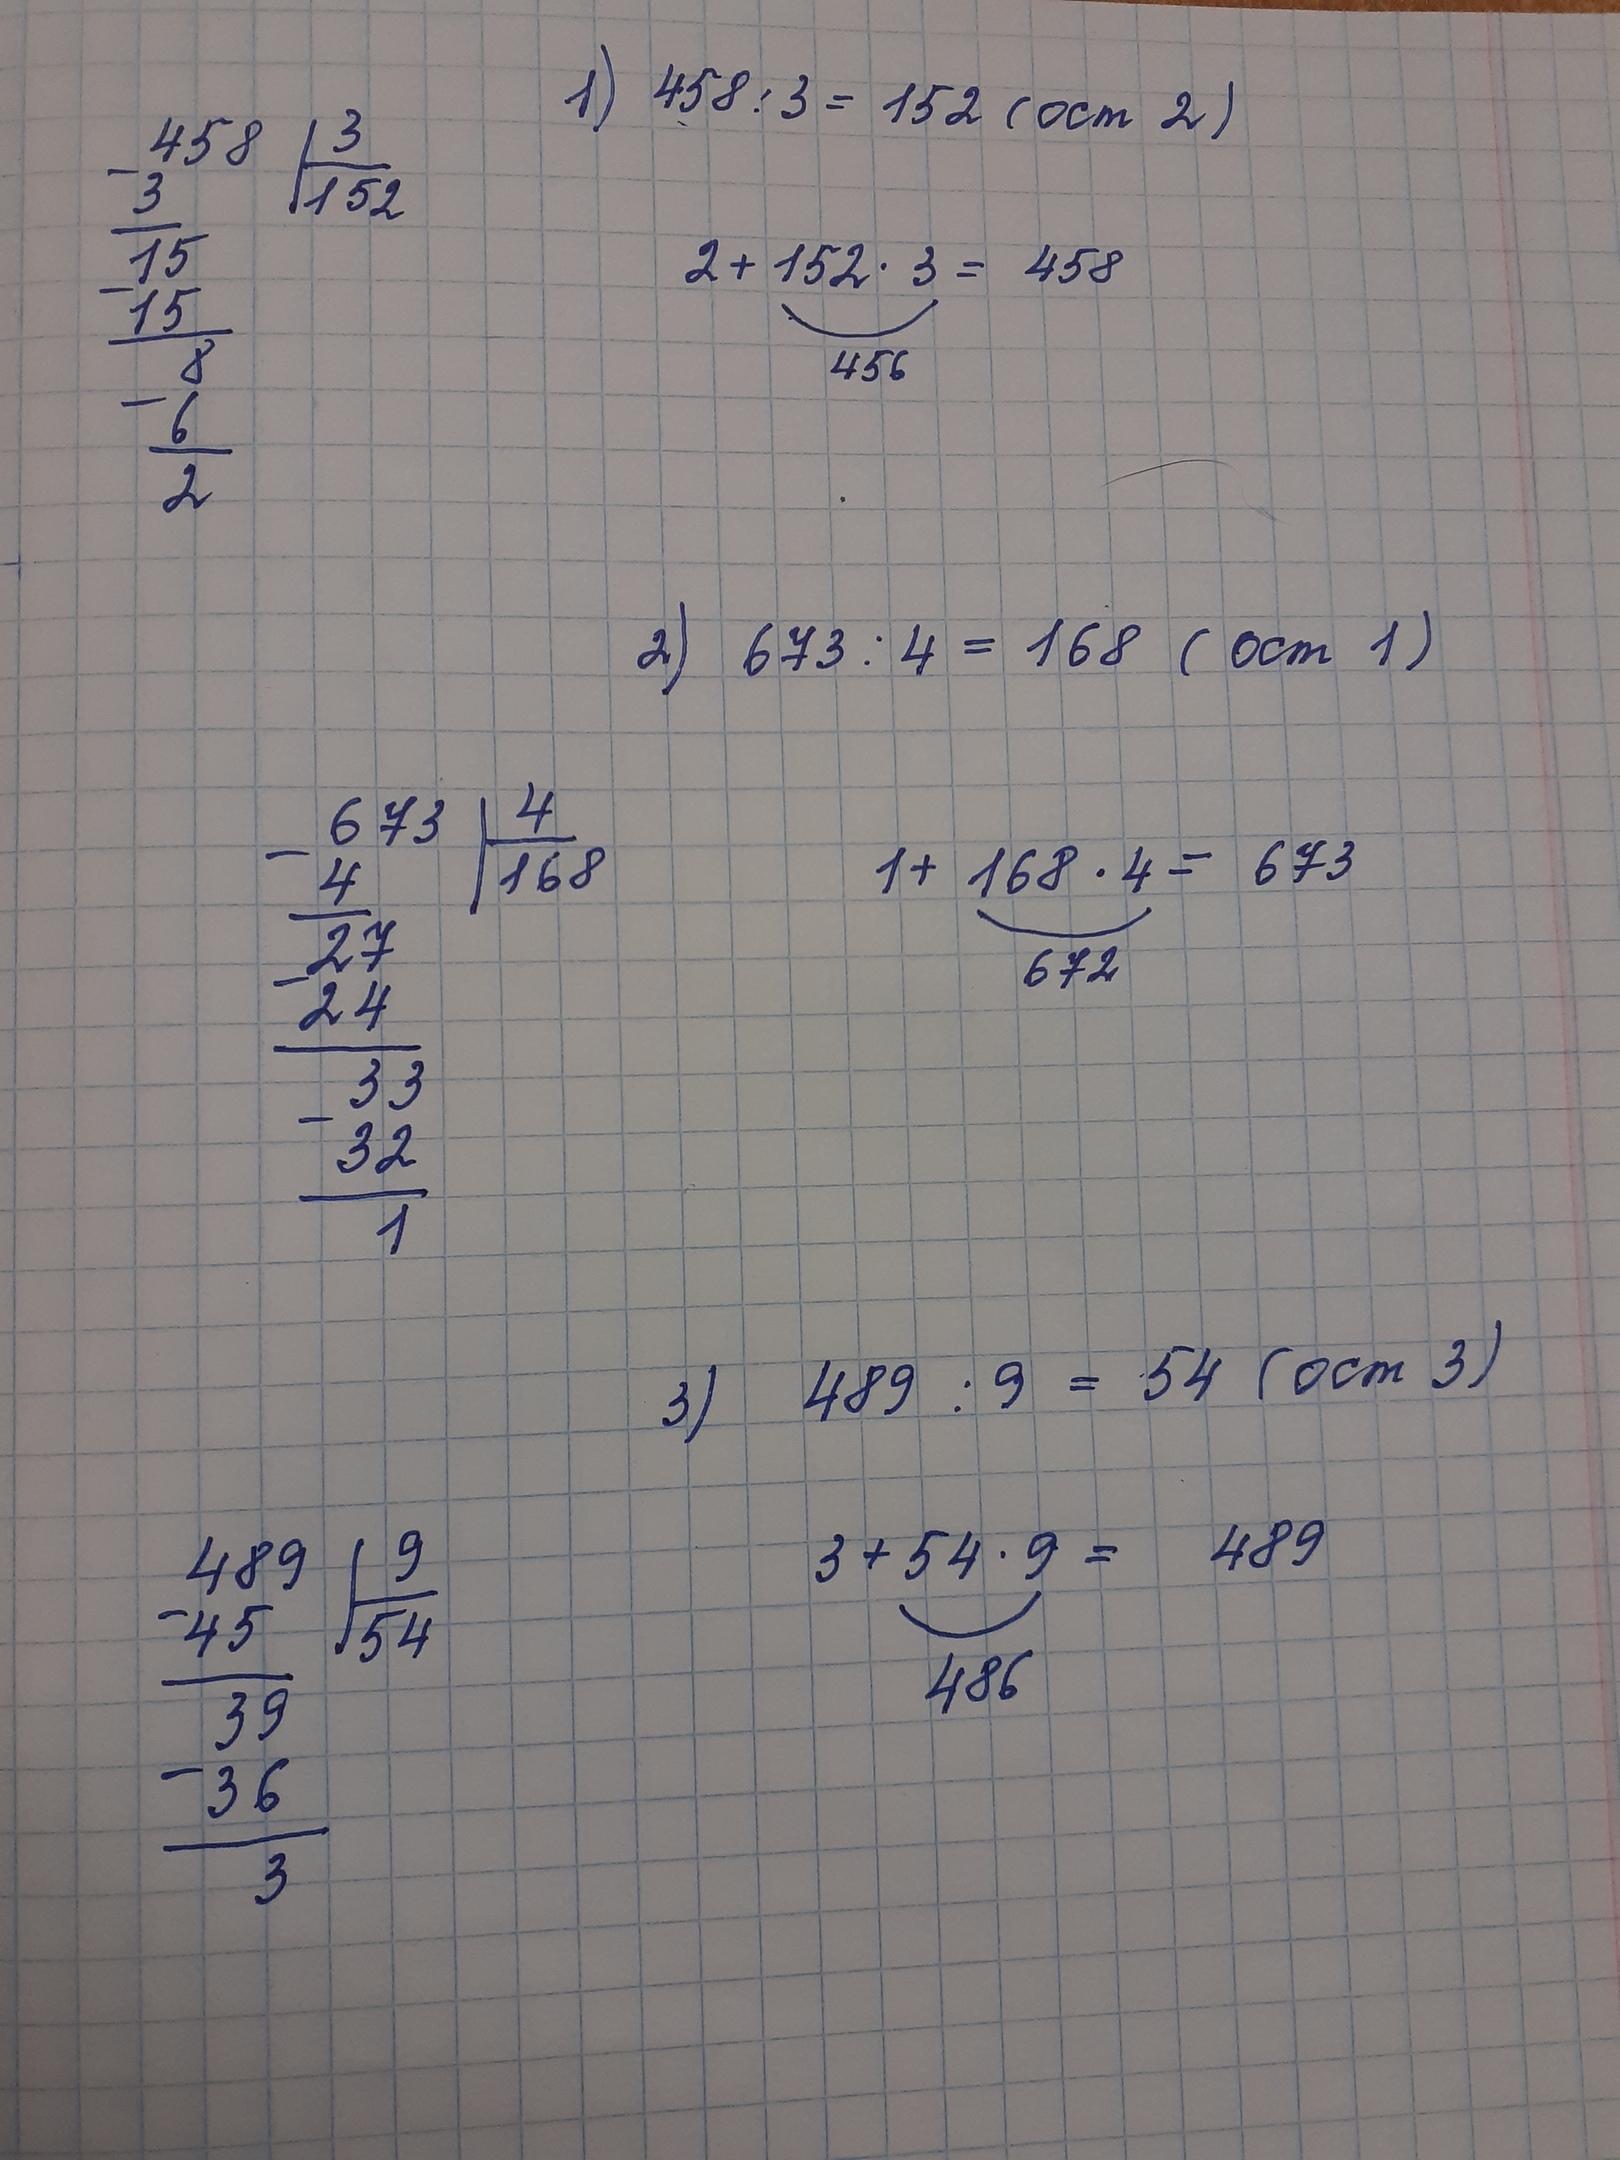 1) 458 : 3 = 152 (ост 2)
458 3
- 3 152
15
- 15
8
- 6
2
2 + 152 · 3 = 458
456
2) 673 : 4 = 168 (ост 1)
673 4
- 4 168
27
- 24
33
- 32
1
1 + 168 · 4 = 673
672
3) 489 : 9 = 54 (ост 3)
489 9
- 45 54
39
- 36
3
3 + 54 · 9 = 489
486